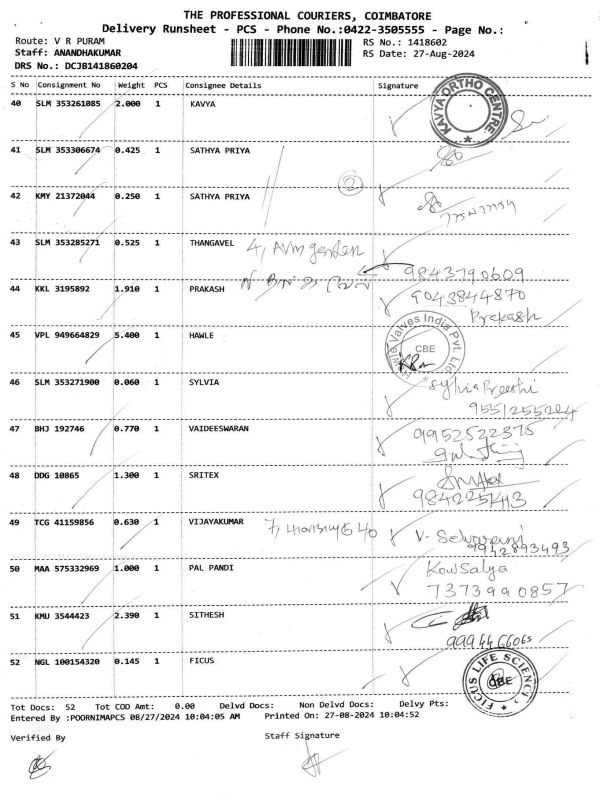 THE PROFESSIONAL COURIERS, COIMBATORE
Delivery Runsheet - PCS - Phone No.:0422-3505555 - Page No.:
Route: V R PURAM RS No.: 1418602
Staff: ANANDHAKUMAR RS Date: 27-Aug-2024
DRS No.: DCJB141860204
S No Consignment No Weight PCS Consignee Details Signature
40 SLM 353261085 2.000 1 KAVYA KAVYA ORTHO CENTRE
41 SLM 353306674 0.425 1 SATHYA PRIYA
42 KMY 21372044 0.250 1 SATHYA PRIYA 2
43 SLM 353285271 0.525 1 THANGAVEL 4, AVM garden
9843790609
44 KKL 3195892 1.910 1 PRAKASH 9043844870
Prakash
45 VPL 949664829 5.400 1 HAWLE Hawle Valves India Pvt. Ltd CBE
46 SLM 353271900 0.060 1 SYLVIA Sylvia Preethi
9551255224
47 BHJ 192746 0.770 1 VAIDEESWARAN 9952522375
48 DDG 10865 1.300 1 SRITEX
9842251413
49 TCG 41159856 0.630 1 VIJAYAKUMAR V- Selvarani
9942893493
50 MAA 575332969 1.000 1 PAL PANDI Kowsalya
7373990857
51 KMU 3544423 2.390 1 SITHESH
9994466065
52 NGL 100154320 0.145 1 FICUS FICUS LIFE SCIENCY CBE
Tot Docs: 52 Tot COD Amt: 0.00 Delvd Docs: Non Delvd Docs: Delvy Pts:
Entered By :POORNIMAPCS 08/27/2024 10:04:05 AM Printed On: 27-08-2024 10:04:52
Verified By Staff Signature